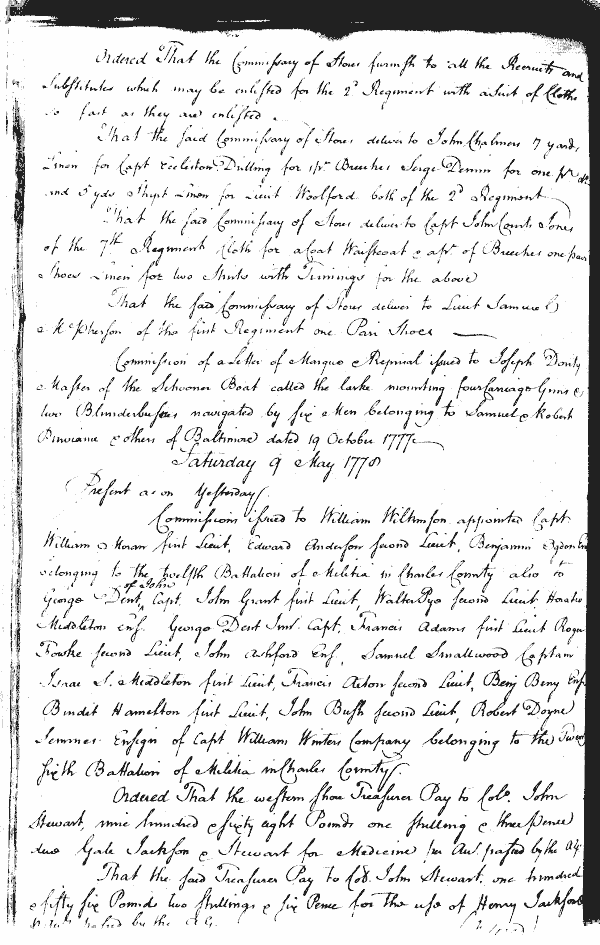 Ordered That the Commissary of Stores furnish to all the Recruits and
Substitutes which may be enlisted for the 2d Regiment with a Suit of Cloths
so fast as they are enlisted
That the said Commissary of Stores deliver to John Chalmers 7 yards
Linen for Capt Eccleston Drilling for 1 pr Breeches Serge Denim for one pr do
and 5 yds Stript Linen for Lieut Woolford both of the 2d Regiment
That the said Commissary of Stores deliver to Capt John Courts Jones
of the 7th Regiment Cloth for a Coat Waistcoat & a pr of Breeches one pair
Shoes Linen for two Shirts with Trimings for the above
That the said Commissary of Stores deliver to Lieut Samuel
McPherson of the first Regiment one Pair Shoes
Commission of a Letter of Marque & Reprisal issued to Joseph
Master of the Schooner Boat called the larke mounting four Carriage Guns &
two Blunderbusses navigated by six Men belonging to Samuel & Robert
Purviance & others of Baltimore dated 19 October 1777
Saturday 9 May 1778
Present as on Yesterday
Commissions issued to William Wilkinson appointed Capt
William Moran first Lieut, Edward Anderson second Lieut, Benjamin
belonging to the twelfth Battalion of Militia in Charles County also to
of John
George Dent, Capt, John Grant first Lieut, Walter Pye second Lieut, Horatio
Middleton Ens. George Dent Junr Capt, Francis Adams first Lieut Roger
Fowke second Lieut, John Ashford Ens, Samuel Smallwood Captain
Isaac S. Middleton first Lieut, Francis Acton second Lieut, Benj Beny Ens
Burdit Hamelton first Lieut, John Bush second Lieut, Robert Doyne
Semmes Ensign of Capt William Winters Company belonging to the Twenty
sixth Battalion of Militia in Charles County
Ordered That the western shore Treasurer Pay to Colo. John
Stewart, nine hundred & sixty eight Pounds one shilling & three pence
due Gale Jackson & Stewart for Medicine per Acct. passed by the
That the said Treasurer Pay to Colo. John Stewart one hundred
& fifty six Pounds two shillings & six Pence for the use of Henry Jackson
passed by the